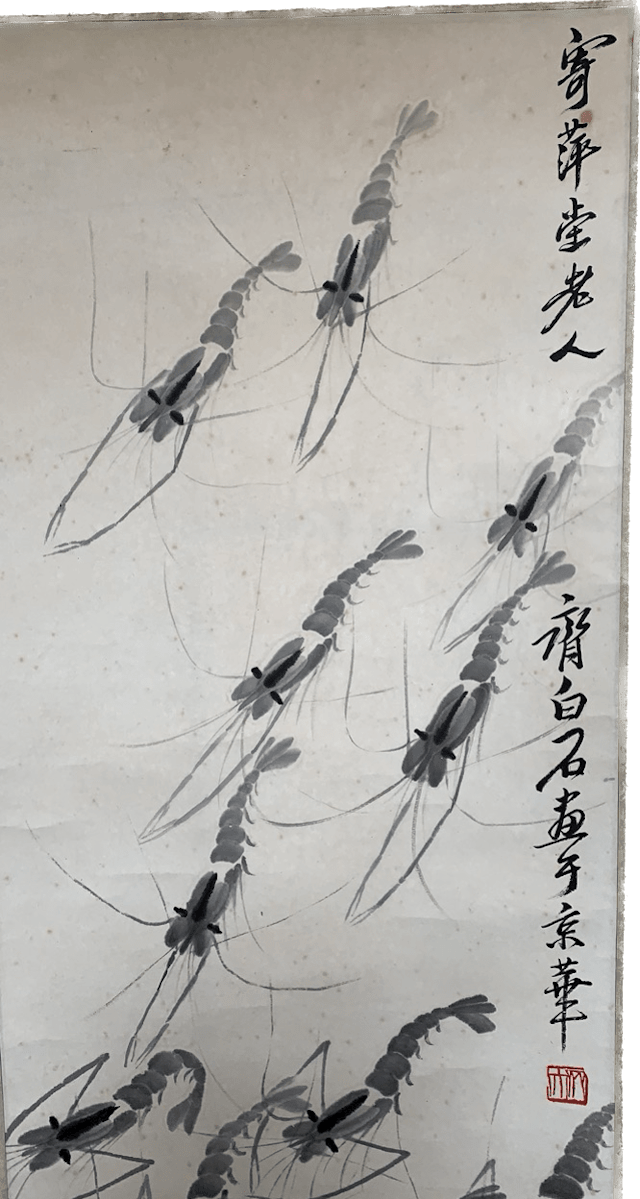 寄萍堂老人
齊白石畫于京華